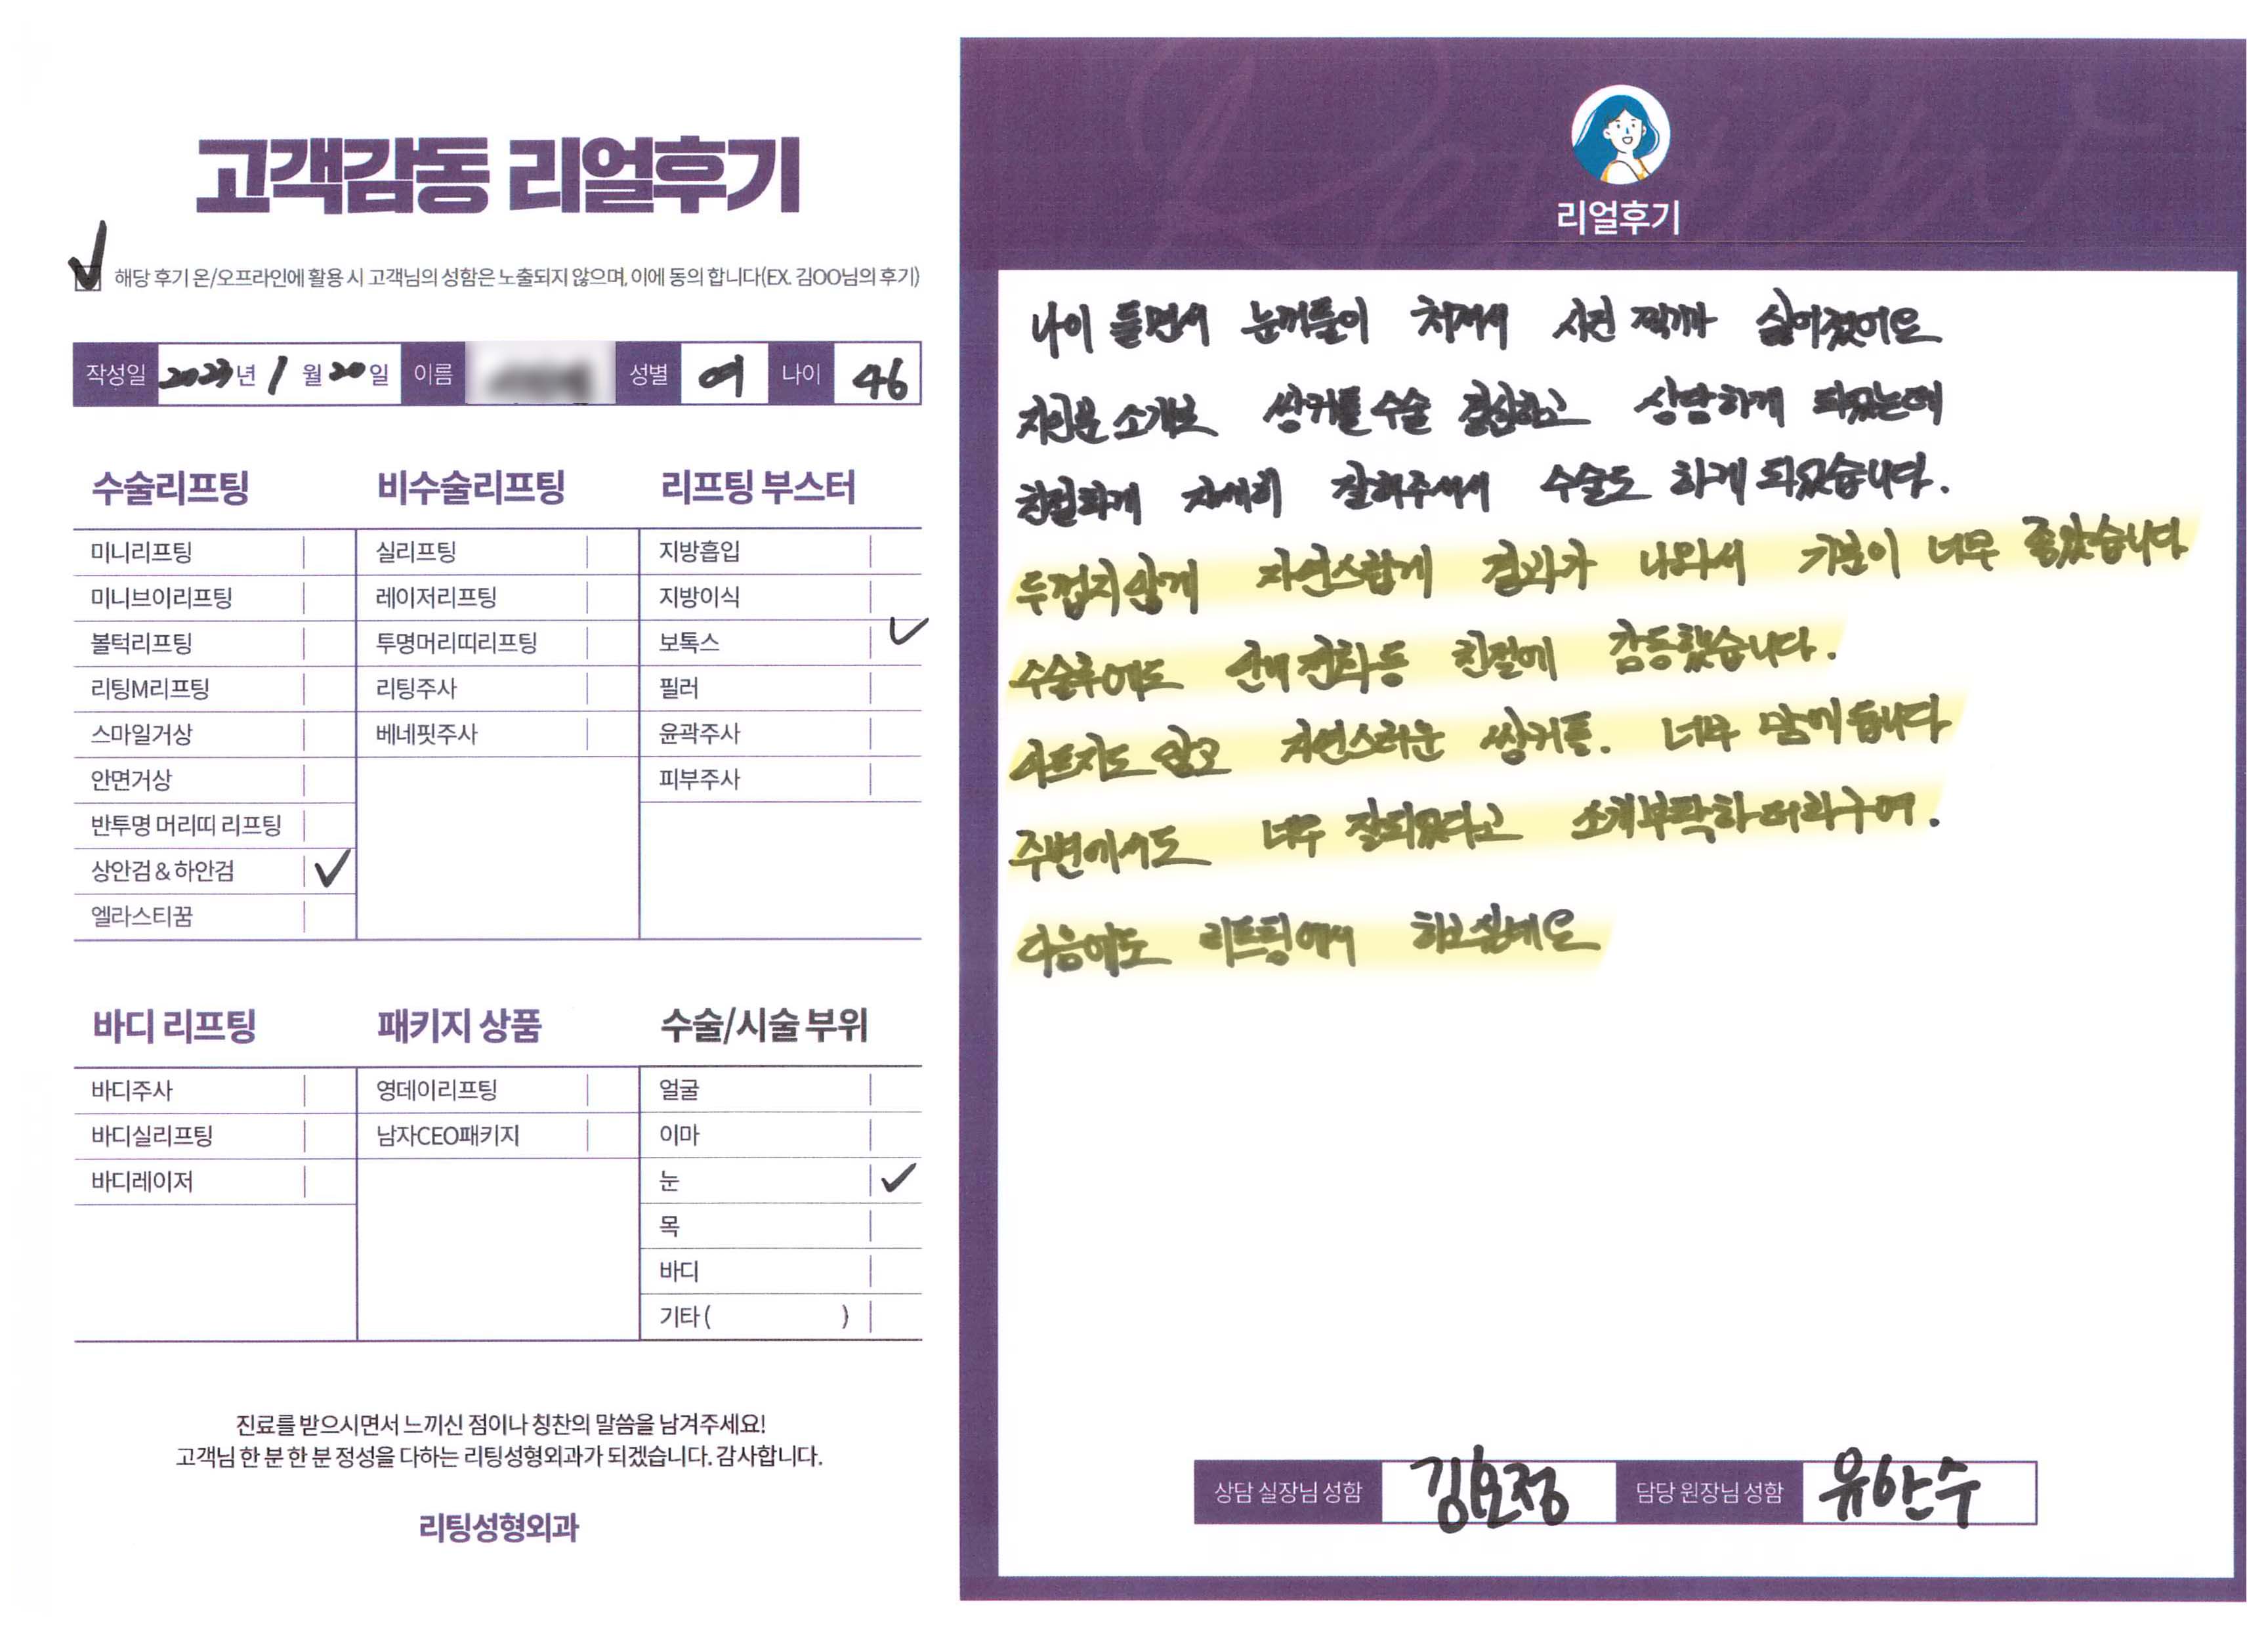 고객감동 리얼후기
해당 후기 온/오프라인에 활용 시 고객님의 성함은 노출되지 않으며, 이에 동의 합니다(EX. 김OO님의 후기)
작성일 2023년 1월 20일 이름 성별 여 나이 46
수술리프팅
미니리프팅
미니브이리프팅
볼턱리프팅
리팅M리프팅
스마일거상
안면거상
반투명 머리띠 리프팅
상안검 & 하안검
엘라스티꿈
비수술리프팅
실리프팅
레이저리프팅
투명머리띠리프팅
리팅주사
베네핏주사
리프팅 부스터
지방흡입
지방이식
보톡스
필러
윤곽주사
피부주사
바디 리프팅
바디주사
바디실리프팅
바디레이저
패키지 상품
영데이리프팅
남자CEO패키지
수술/시술 부위
얼굴
이마
눈
목
바디
기타 ( )
진료를 받으시면서 느끼신 점이나 칭찬의 말씀을 남겨주세요!
고객님 한 분 한 분 정성을 다하는 리팅성형외과가 되겠습니다. 감사합니다.
리팅성형외과
리얼후기
나이 들면서 눈꺼풀이 처져서 사진 찍기가 싫어졌어요
지인분 소개로 쌍커풀 수술 결심하고 상담하게 되었는데
친절하게 자세히 잘해주셔서 수술도 하게 되었습니다.
두껍지않게 자연스럽게 결과가 나와서 기분이 너무 좋았습니다
수술후에도 안내 전화 등 친절에 감동했습니다.
아프지도 않고 자연스러운 쌍커풀. 너무 맘에 듭니다
주변에서도 너무 잘되었다고 소개부탁하더라구여.
다음에도 리프팅에서 하고싶네요
상담 실장님 성함 김효정 담당 원장님 성함 유한수